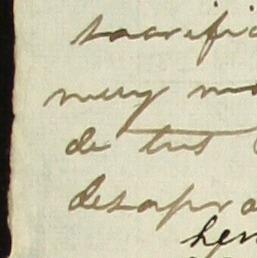 sacrific
muy m
de tus
desapra
her